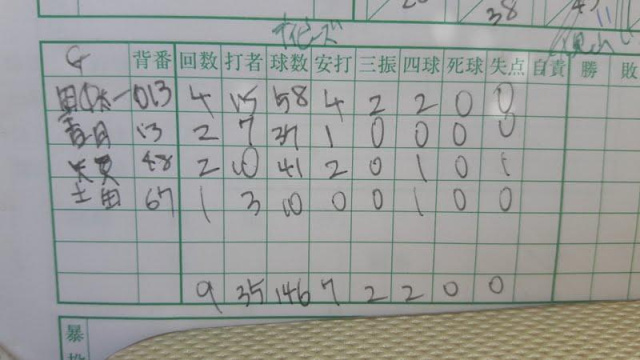 38
G 背番 回数 打者 球数 安打 三振 四球 死球 失点 自責 勝 敗
013 4 15 58 4 2 2 0 0
13 2 7 37 1 0 0 0 0
48 2 10 41 2 0 1 0 1
土田 67 1 3 10 0 0 1 0 0
9 35 146 7 2 2 0 0
暴